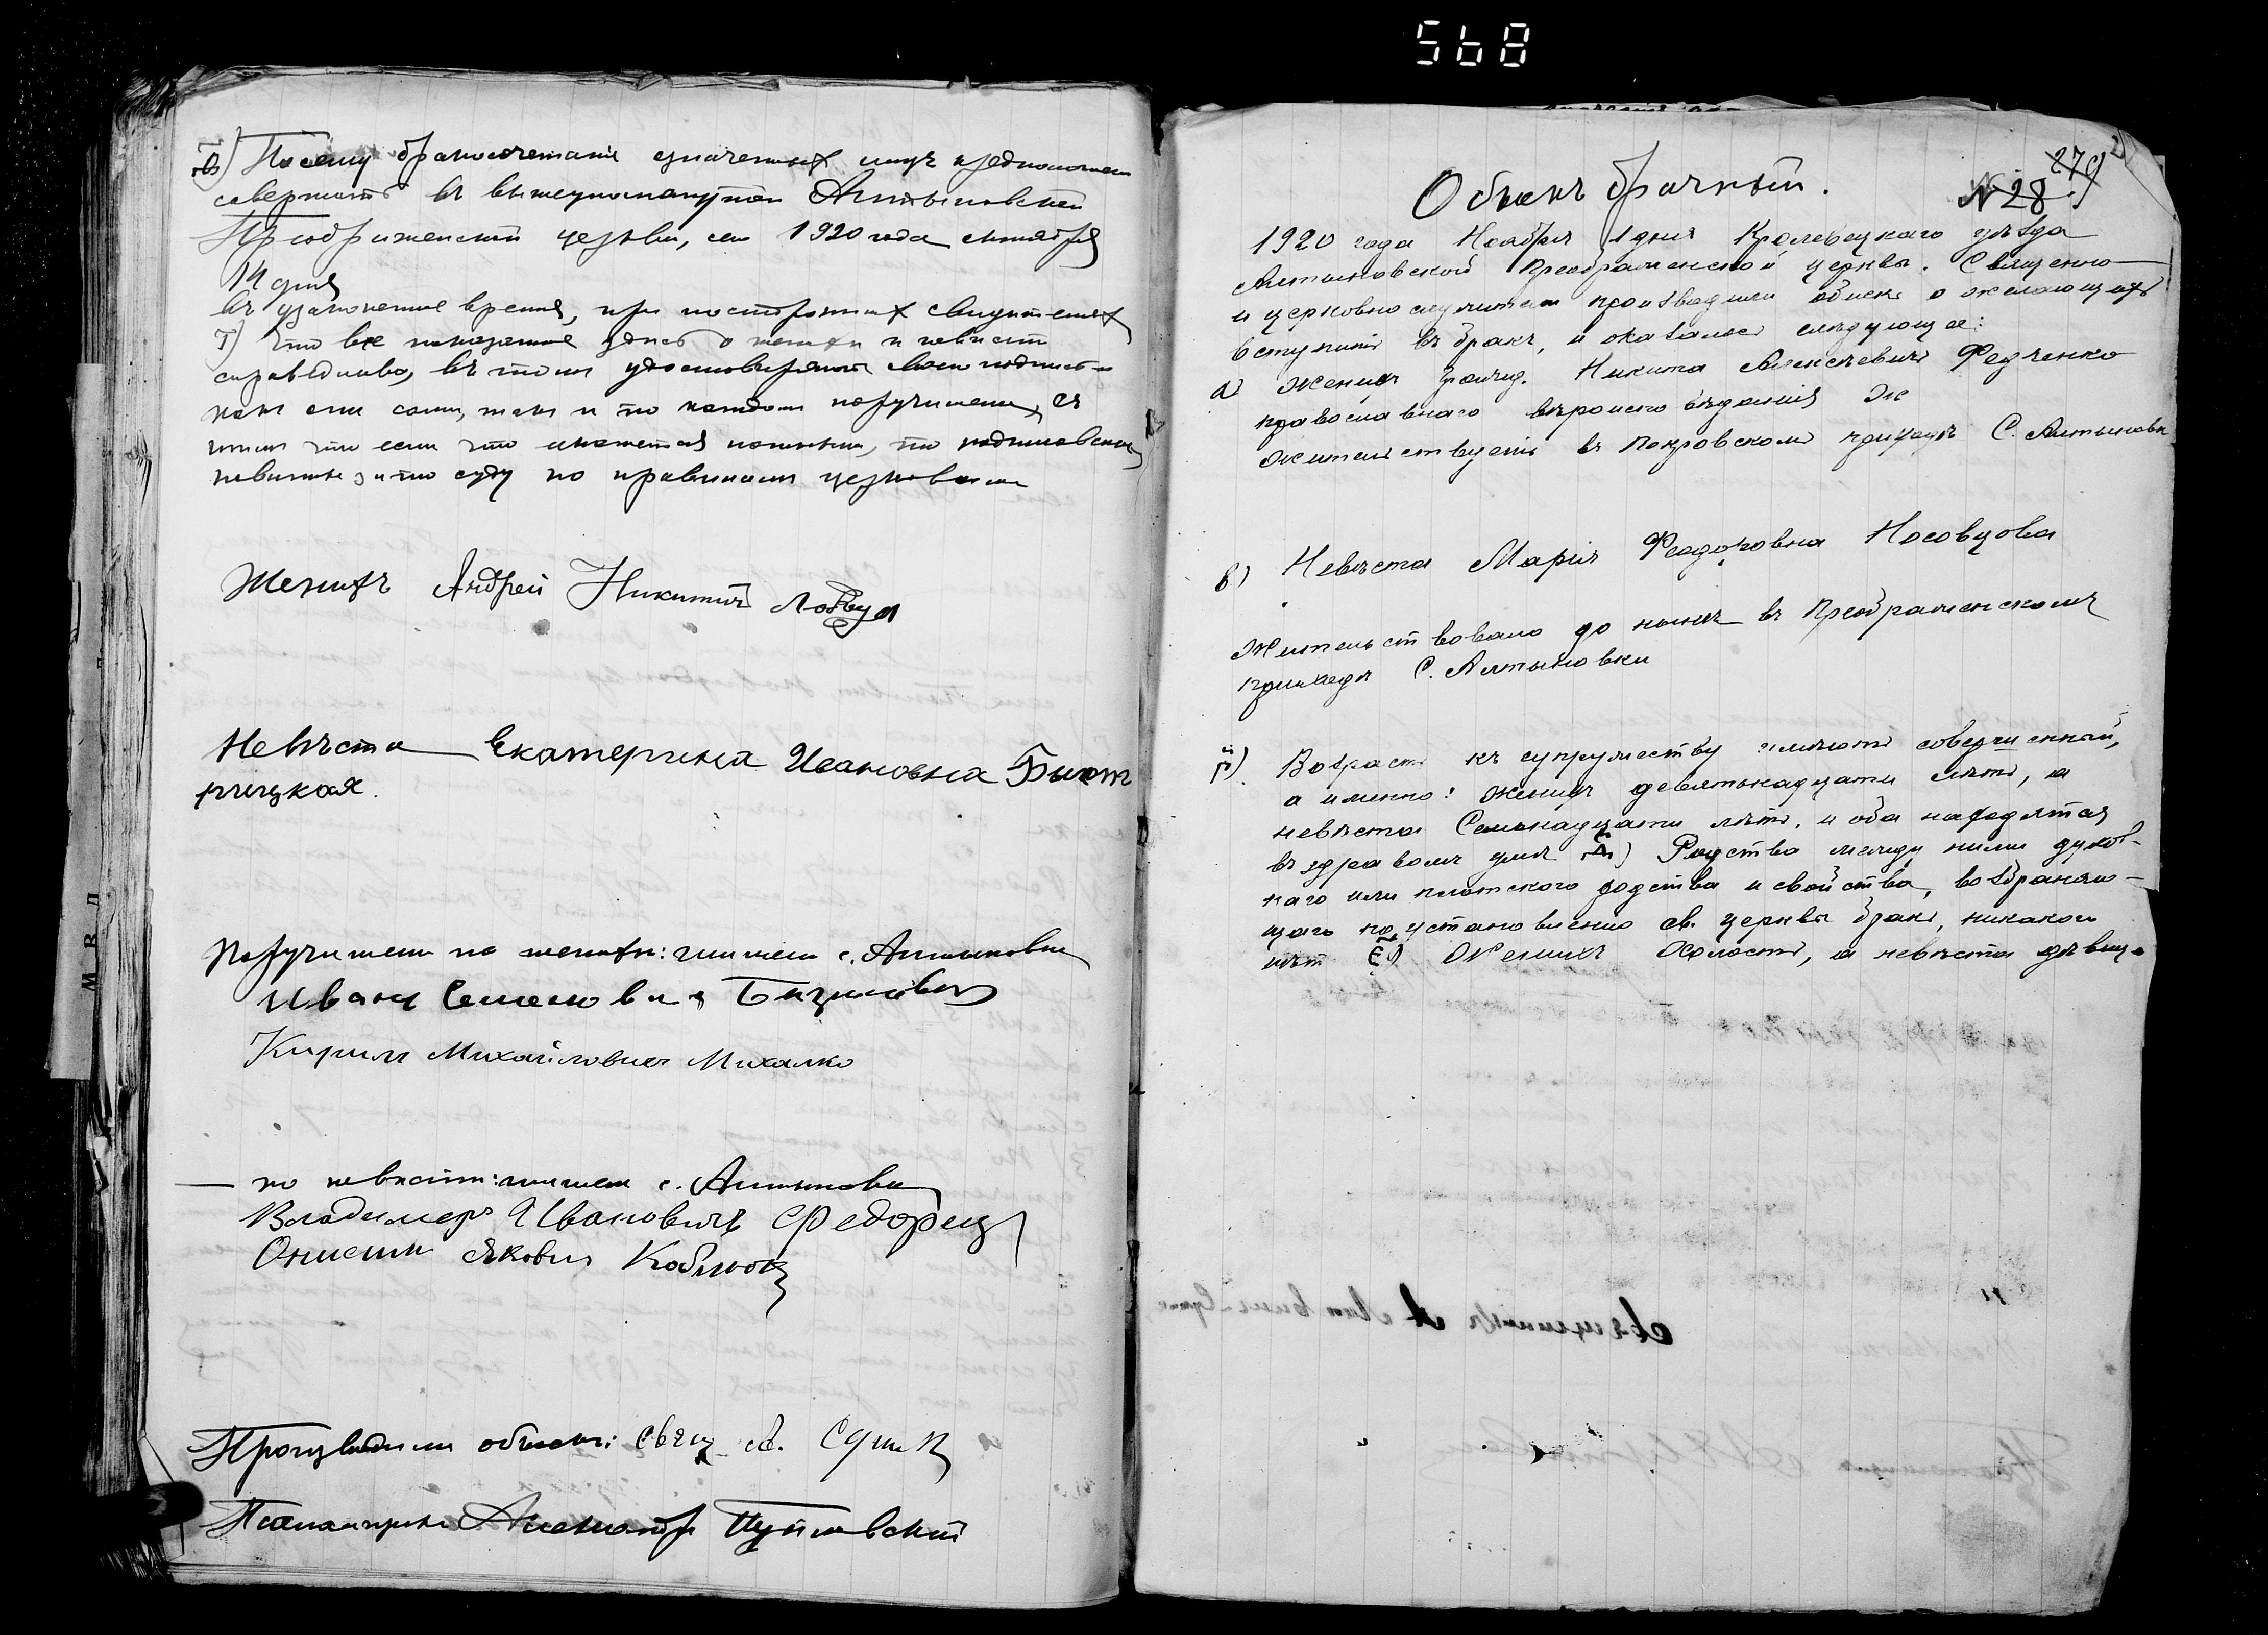 568
Ѳ) Посему бракосочетаніе означенныхъ лицъ предположено
совершить въ вышеупомянутой Алтыновской
Преображенской церкви, сего 1920 года октября
14 дня
въ узаконенное время, при постороннихъ свидѣтеляхъ
І) Что все показанное здесь о женихѣ и невѣстѣ
справедливо, въ томъ удостовѣряютъ своею подписью
какъ они сами, такъ и по каждомъ поручители, съ
тѣмъ что если что окажется ложнымъ, то подписавшіеся
повинны за то суду по правиламъ церковнымъ
Женихъ Андрей Никитичъ
Невѣста Екатерина Ивановна
Поручители по женихѣ: жители с. Алтыновки
Иванъ Семеновичъ
Кирилъ Михайловичъ Михалко
— по невѣстѣ: жители с. Алтыновки
Владимеръ Ивановичъ Федорец
Онисим Якович
Производили обыскъ: Свящ.
Псаломщикъ Александръ
279
Обыскъ брачный. № 28
1920 года Ноября 1 дня Кролевецкаго уѣзда
Алтыновской Преображенской церквы. Священно
и церковно служители производили обыскъ о желающихъ
вступить въ бракъ, и оказалось слѣдующее:
а) Женихъ гражд. Никита Алексѣевичъ Федченко
православнаго вѣроисповѣданія Ж
Жительствуетъ въ Покровскомъ приходѣ С. Алтыновки
в) Невѣста Марія Феодоровна Носовцова
Жительствовало до нынѣ въ Преображенскомъ
приходѣ С. Алтыновки
г) Возрастъ къ супружеству имѣютъ совершенный,
а именно: женихъ девятьнадцати лѣтъ, а
невѣста Семьнадцати лѣтъ, и оба находятся
въ здравомъ умѣ Д) Родства между ними духов-
наго или плотского родства и свойства, возбраняю-
щаго по установленію св. церквы бракъ, никакого
нѣт Е) Женихъ Холостъ, а невѣста дѣвица